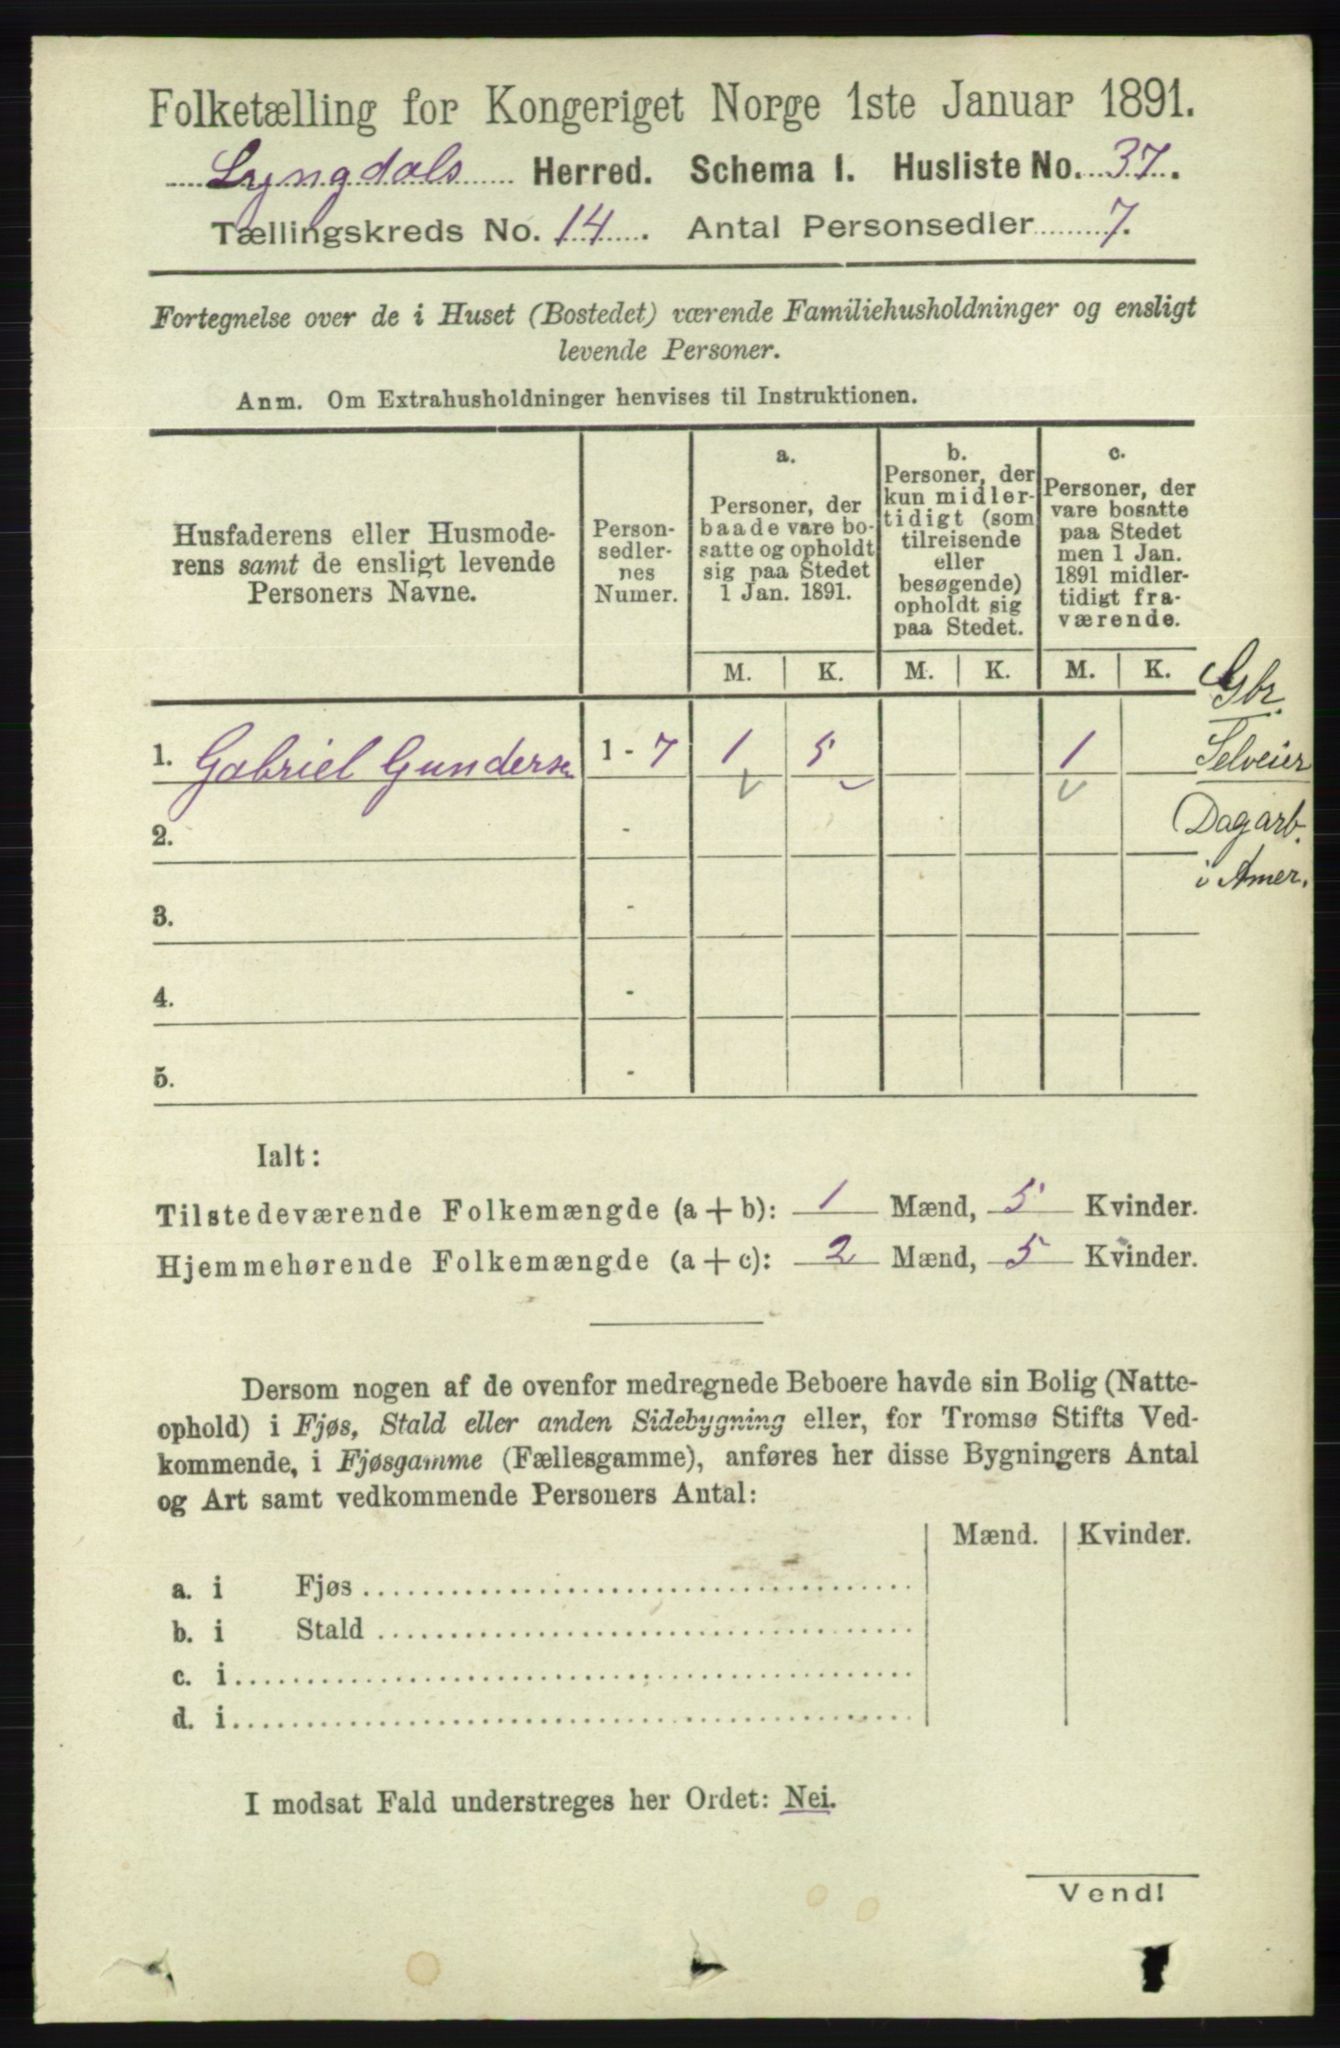 Folketælling for Kongeriget Norge 1ste Januar 1891.
Lyngdals Herred. Schema I. Husliste No. 37.
Tællingskreds No. 14. Antal Personsedler 7.
Fortegnelse over de i Huset (Bostedet) værende Familiehusholdninger og ensligt
levende Personer.
Anm. Om Extrahusholdninger henvises til Instruktionen.
Husfaderens eller Husmode-
rens samt de ensligt levende
Personers Navne.
Person-
sedler-
nes
Numer.
a.
Personer, der
baade vare bo-
satte og opholdt
sig paa Stedet
1 Jan. 1891.
b.
Personer, der
kun midler-
tidigt (som
tilreisende
eller
besøgende)
opholdt sig
paa Stedet.
c.
Personer, der
vare bosatte
paa Stedet
men 1 Jan.
1891 midler-
tidigt fra-
værende.
M. K. M. K. M. K.
Gbr.
1. Gabriel Gundersen 1 - 7 1 5 1
Selveier
2. -
Dagarb.
i Amer.
3. -
4. -
5. -
Ialt:
Tilstedeværende Folkemængde (a + b): 1 Mænd, 5 Kvinder.
Hjemmehørende Folkemængde (a + c): 2 Mænd, 5 Kvinder.
Dersom nogen af de ovenfor medregnede Beboere havde sin Bolig (Natte-
ophold) i Fjøs, Stald eller anden Sidebygning eller, for Tromsø Stifts Ved-
kommende, i Fjøsgamme (Fællesgamme), anføres her disse Bygningers Antal
og Art samt vedkommende Personers Antal:
Mænd. Kvinder.
a. i Fjøs
b. i Stald
c. i
d. i
I modsat Fald understreges her Ordet: Nei.
Vend!